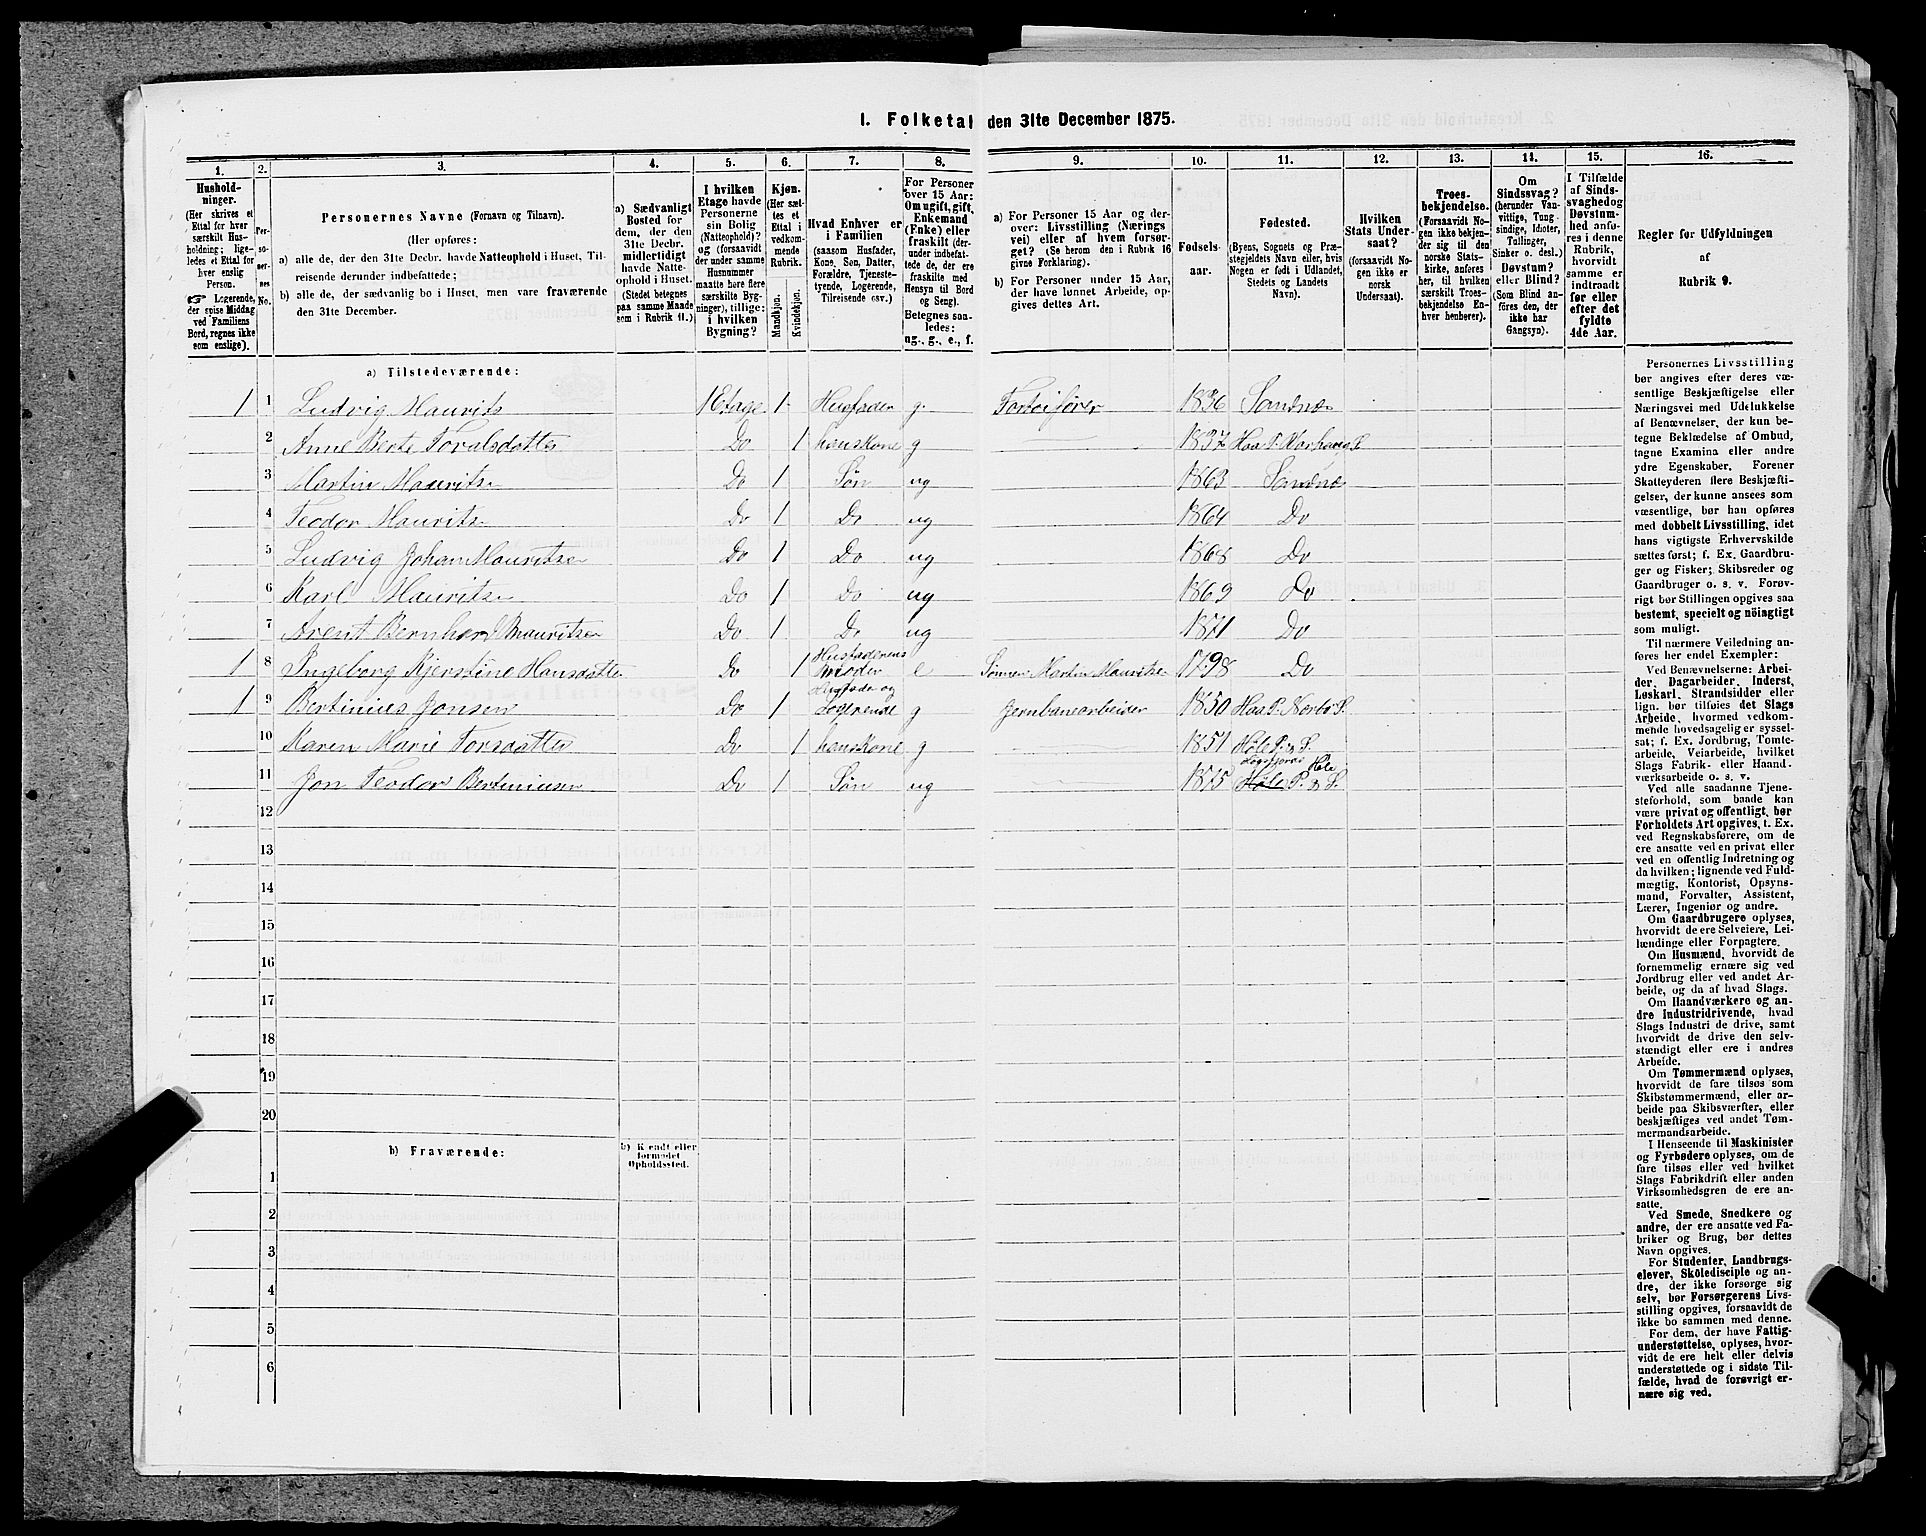 1. Folketal den 31te December 1875.
1. 2. 3. 4. 5. 6. 7. 8. 9. 10. 11. 12. 13. 14. 15. 16.
Hushold-
ninger.
(Her skrives et
Ettal for hver
særskilt Hus-
holdning; lige-
ledes et Ettal for
hver enslig
Person.
☞ Logerende,
der spise Middag
ved Familiens
Bord, regnes ikke
som enslige).
Per-
so-
ner-
nes
No.
Personernes Navne (Fornavn og Tilnavn).
(Her opføres:
a) alle de, der den 31te Decbr. havde Natteophold i Huset, Til-
reisende derunder indbefattede;
b) alle de, der sædvanlig bo i Huset, men vare fraværende
den 31te December.
a) Sædvanligt
Bosted for
dem, der den
31te Decbr.
midlertidigt
havde Natte-
ophold i Huset.
(Stedet betegnes
paa samme Maade
som i Rubrik 11.)
I hvilken
Etage havde
Personerne
sin Bolig
(Natteophold)?
og
(forsaavidt
der under samme
Husnummer
maatte høre flere
særskilte Byg-
ninger), tillige:
i hvilken
Bygning?
Kjøn.
(Her sæt-
tes et
Ettal i
vedkom-
mende
Rubrik.
Mandkjøn.
Kvindekjøn.
Hvad Enhver er
i Familien
(saasom Husfader,
Kone, Søn, Datter,
Forældre, Tjeneste-
tyende, Logerende,
Tilreisende osv.)
For Personer
over 15 Aar:
Om ugift, gift,
Enkemand
(Enke) eller
fraskilt (der-
under indbefat-
tede de, der ere
fraskilte med
Hensyn til Bord
og Seng).
Betegnes saa-
ledes:
ug., g., e., f.
a) For Personer 15 Aar og der-
over: Livsstilling (Nærings
vei) eller af hvem forsør-
get? (Se herom den i Rubrik 16
givne Forklaring).
b) For Personer under 15 Aar,
der have lønnet Arbeide, op-
gives dettes Art.
Fødsels-
aar.
Fødested.
(Byens, Sognets og Præ-
stegjeldets Navn eller, hvis
Nogen er født i Udlandet,
Stedets og Landets
Navn).
Hvilken
Stats Under-
saat?
(forsaavidt No-
gen ikke er
norsk
Undersaat).
Troes-
bekjendelse.
(Forsaavidt No-
gen ikke bekjen-
der sig til den
norske Stats-
kirke, anføres
her, til hvilken
særskilt Troes-
bekjendelse En-
hver henhører).
Om
Sindssvag?
(herunder Van-
vittige, Tung-
sindige, Idioter,
Tullinger,
Sinker o. desl.)
Døvstum?
eller Blind?
(Som Blind an-
føres den, der
ikke har
Gangsyn).
I Tilfælde
af Sinds-
svaghed og
Døvstum-
hed anfø-
res i denne
Rubrik,
hvorvidt
samme er
indtraadt
før eller
efter det
fyldte
4de Aar.
Regler for Udfyldningen
af
Rubrik 9.
a) Tilstedeværende:
1 1 Ludvig Maurits 1 Etage 1 Husfader g. 1836 Sandnæs
2 Anne Berte Toralsdatter Do 1 huuskone g 1837 Haa P.
3 Martin Mauritsen Do 1 Søn ug 1863 Sandnæs
4 Teodor Mauritsen Do 1 Do ug 1864 Do
5 Ludvig Johan Mauritsen Do 1 Do ug 1868 Do
6 Karl Mauritsen Do 1 Do ug 1869 Do
7 Arent Bernhard Mauritsen Do 1 Do ug 1871 Do
1 8 Ingeborg Kjerstine Hansdatter Do 1 Husfaderens moder e Sønnen Martin Mauritsen 1798 Do
1 9 Bertinius Jonsen Do 1 Husfader og Logerende g Jernbanearbeider 1850 Haa P. Nærbø S.
10 Karen Marie Torsdatter Do 1 huuskone g 1851 Høle P. & S.
11 Jon Teodor Bertiniusen Do 1 Søn ug 1875 Høle P. & S.
12
13
14
15
16
17
18
19
20
b) Fraværende:
b) Kjendt eller
formodet
Opholdssted.
1
2
3
4
5
6
Personernes Livsstilling
bør angives efter deres væ-
sentlige Beskjæftigelse eller
Næringsvei med Udelukkelse
af Benævnelser, der kun be-
tegne Beklædelse af Ombud,
tagne Examina eller andre
ydre Egenskaber. Forener
Skatteyderen flere Beskjæfti-
gelser, der kunne ansees som
væsentlige, bør han opføres
med dobbelt Livsstilling, idet
hans vigtigste Erhvervskilde
sættes først; f. Ex. Gaardbru-
ger og Fisker; Skibsreder og
Gaardbruger o. s. v. Forøv-
rigt bør Stillingen opgives saa
bestemt, specielt og nöiagtigt
som muligt.
Til nærmere Veiledning an-
føres her endel Exempler:
Ved Benævnelserne: Arbei-
der, Dagarbeider, Inderst,
Løskarl, Strandsidder eller
lign. bør tilføies det Slags
Arbeide, hvormed vedkom-
mende hovedsagelig er syssel-
sat; f. Ex. Jordbrug, Tomte-
arbeide, Veiarbeide, hvilket
Slags Fabrik- eller Haand-
værksarbeide o. s. v.
Ved alle saadanne Tjene-
steforhold, som baade kan
være privat og offentligt, bør
Forholdets Art opgives, t. Ex.
ved Regnskabsførere, om de
ere ansatte ved en privat eller
ved en offentlig Indretning og
da hvilken; lignende ved Fuld-
mægtig, Kontorist, Opsyns-
mand, Forvalter, Assistent,
Lærer, Ingeniør og andre.
Om Gaardbrugere oplyses,
hvorvidt de ere Selveiere, Lei-
lændinge eller Forpagtere.
Om Husmænd, hvorvidt de
fornemmelig ernære sig ved
Jordbrug eller ved andet Ar-
beide, og da af hvad Slags.
Om Haandværkere og an-
dre Industridrivende, hvad
Slags Industri de drive, samt
hvorvidt de drive den selv-
stændigt eller ere i andres
Arbeide.
Om Tømmermænd oplyses,
hvorvidt de fare tilsøs som
Skibstømmermænd, eller ar-
beide paa Skibsværfter, eller
beskjæftiges ved andet Tøm-
mermandsarbeide.
I Henseende til Maskinister
og Fyrbødere oplyses, om de
fare tilsøs eller ved hvilket
Slags Fabrikdrift eller anden
Virksomhedsgren de ere an-
satte.
Ved Smede, Snedkere og
andre, der ere ansatte ved Fa-
briker og Brug, bør dettes
Navn opgives.
For Studenter, Landbrugs-
elever, Skôledisciple og an-
dre, der ikke forsørge sig
selv, bør Forsørgerens Livs-
stilling opgives, forsaavidt de
ikke bo sammen med denne.
For dem, der have Fattig-
understøttelse, oplyses, hvor-
vidt de ere helt eller delvis
understøttede og i sidste Til-
fælde, hvad de forøvrigt er-
nære sig ved.